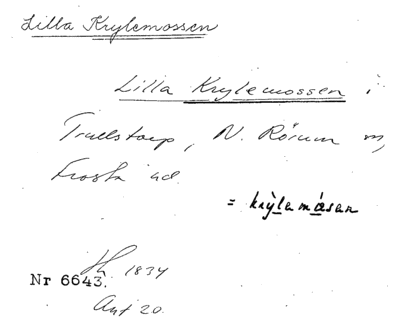 Lilla Krylemossen
Lilla Krylemossen i
Trullstorp, N. Rörum sn,
Frosta hd.
= krỳlemåsan
1834
Nr 6643.
Ant 20.